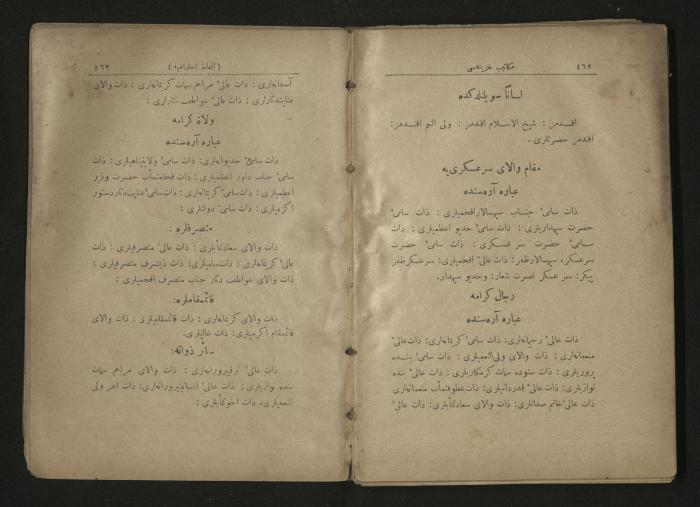 ٤٦٢
مكاتيب خزينه‌سی
لساناً سويلنلدكده
افندمز : شيخ الاسلام افندمز : ولی النعم افندمز :
افندمز حضرتلری .
مقام والای سرعسكری‌يه
عباره آره‌سنده
ذات سامیٔ جناب سپهسالارافخميلری : ذات سامیٔ
حضرت سپهداريلری : ذات سامیٔ خديو اعظميلری : ذات
سامیٔ حضرت سرعسكری : ذات سامیٔ حضرت
سرعسكره سپهسالارظفر : ذات عالیٔ افخميلری : سرعسكرظفر
پيكر : سرعسكر نصرت شعار : وخديو سپهدار .
رجال كرامه
عباره آره‌سنده
ذات عالیٔ رحيمانه‌لری : ذات سامیٔ كريمانه‌لری : ذات‌عالیٔ
منعمانه‌لری : ذات والای ولی‌النعميلری : ذات سامیٔ بنده
پروريلری : ذات ستوده سمات كرمكاريلری : ذات عالیٔ بنده
نوازيلری : ذات عالیٔ قدردانيلری : ذات عطوفتمآب منعمانه‌لری
ذات عالیٔ خاتم صفاتلری : ذات والای سعادتمآبلری : ذات عالیٔ
(الفاظ احتراميه)
٤٦٣
آصفانه‌لری : ذات عالیٔ مراحم سمات كريمانه‌لری : ذات والای
عنايتدثارلری : ذات عالیٔ عواطف دثارلری :
ولاة كرامه
عباره آره‌سنده
ذات سامیٔ خديوانه‌لری : ذات سامیٔ ولايتپناهيلری : ذات
سامیٔ جناب داور اعظميلری : ذات فخامتمآب حضرت وزير
اعظميلری : ذات‌سامیٔ كريمانه‌لری : ذات‌سامیٔ عنايت‌دثاردستور
اكرميلری : ذات سامیٔ دولتلری :
متصرفلره :
ذات والای سعادتمآبلری : ذات عالیٔ متصرفيلری : ذات
عالیٔ كريمانه‌لری : ذات‌ساميلری : ذات ذيشرف متصرفيلری :
ذات والای عواطف دثار جناب متصرف افخميلری :
قائمقاملره :
ذات والای كريمانه‌لری : ذات قائمقاميلری : ذات والای
قائمقام اكرميلری : ذات عاليلری .
سائر ذواته :
ذات عالیٔ پرورانه‌لری : ذات والای مراحم سمات
بنده نوازيلری : ذات عالیٔ انسانيتپرورانه‌لری : ذات اعز ولی
النعميلری ، ذات اخوتمآبلری :